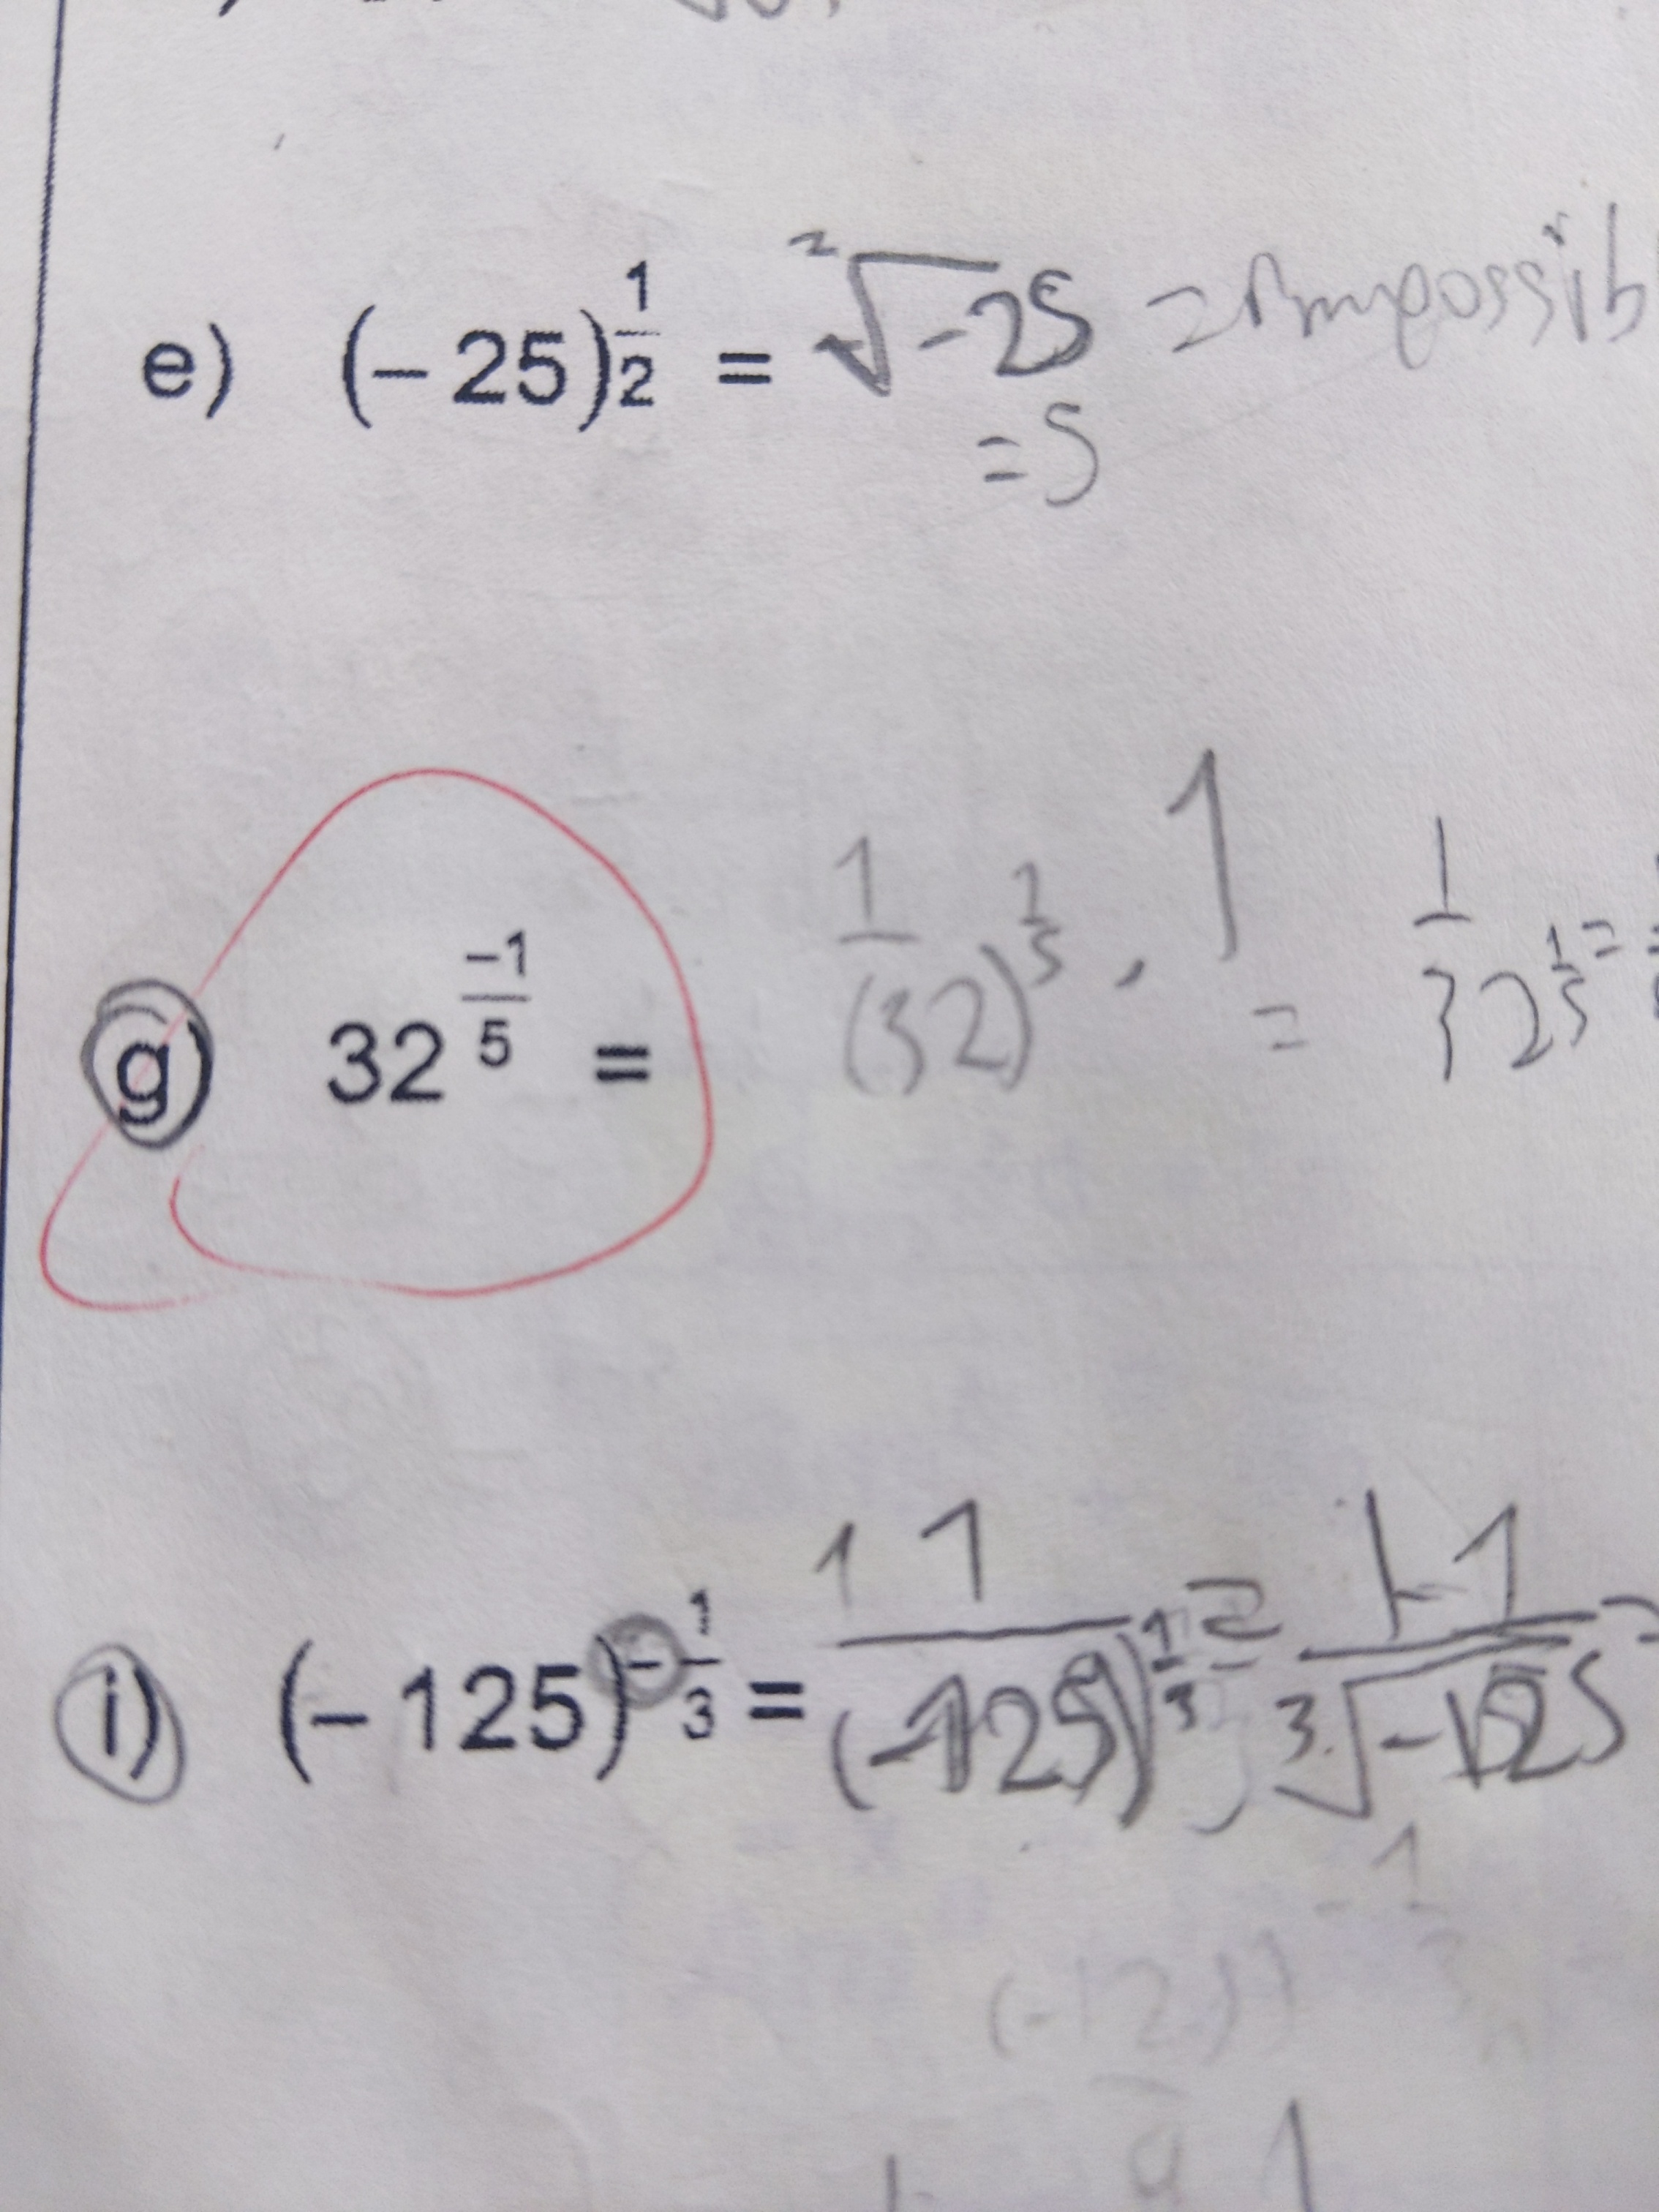 e) (-25)^{1/2} = ²√-25 = Impossib
= 5
g) 32^{-1/5} = 1/(32)^{1/5} · 1 = 1/32^{1/5} =
i) (-125)^{-1/3} = 1 1/(-125)^{1/3} = 1-1/³√-125 =